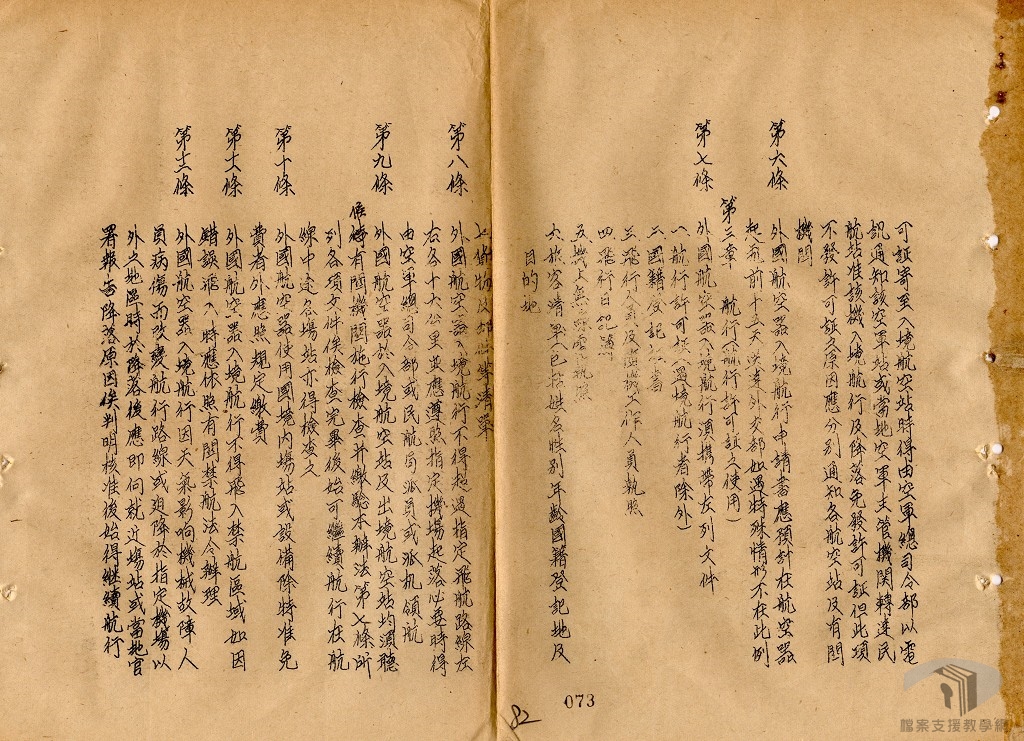 可証寄至入境航空站時得由空軍總司令部以電
訊通知該空軍站或當地空軍主管機関轉達民
航站准該機入境航行及降落免發許可証但此項
不發許可証之原因應分別通知各航空站及有関
機関
第六條
外國航空器入境航行申請書應預計在航空器
起飛前十五天送達外交部如遇特殊情形不在此例
第三章 航行(航行許可証之使用)
第七條
外國航空器入境航行須携帶左列文件
一航行許可証(過境航行者除外)
二國籍登記証書
三飛行人員及機工作人員執照
四飛行日記
五機上無線電執照
六旅客清單(包括姓名性別年齡國籍登記地及
目的地
七貨物及郵件清單
第八條
外國航空器入境航行不得超過指定飛航路線左
右各十六公里並應遵照指定機場起落必要時得
由空軍總司令部或民航局派員或派机領航
第九條
外國航空器於入境航空站及出境航空站均須聽
候有関機関施行檢查並繳驗本辦法第七條所
列各項文件俟檢查完畢後始可繼續航行在航
線中途各場站亦得檢查之
第十條
外國航空器使用國境內場站或設備除特准免
費者外應照規定繳費
第十一條
外國航空器入境航行不得飛入禁航區域如因
錯誤飛入時應依照有関禁航法令辦理
第十二條
外國航空器入境航行因天氣影响機械故障人
員病傷而改變航行路線或迫降於指定機場以
外之地區時於降落後應即向就近場站或當地官
署報告降落原因俟判明核准後始得继續航行
073
82
檔案支援教學網